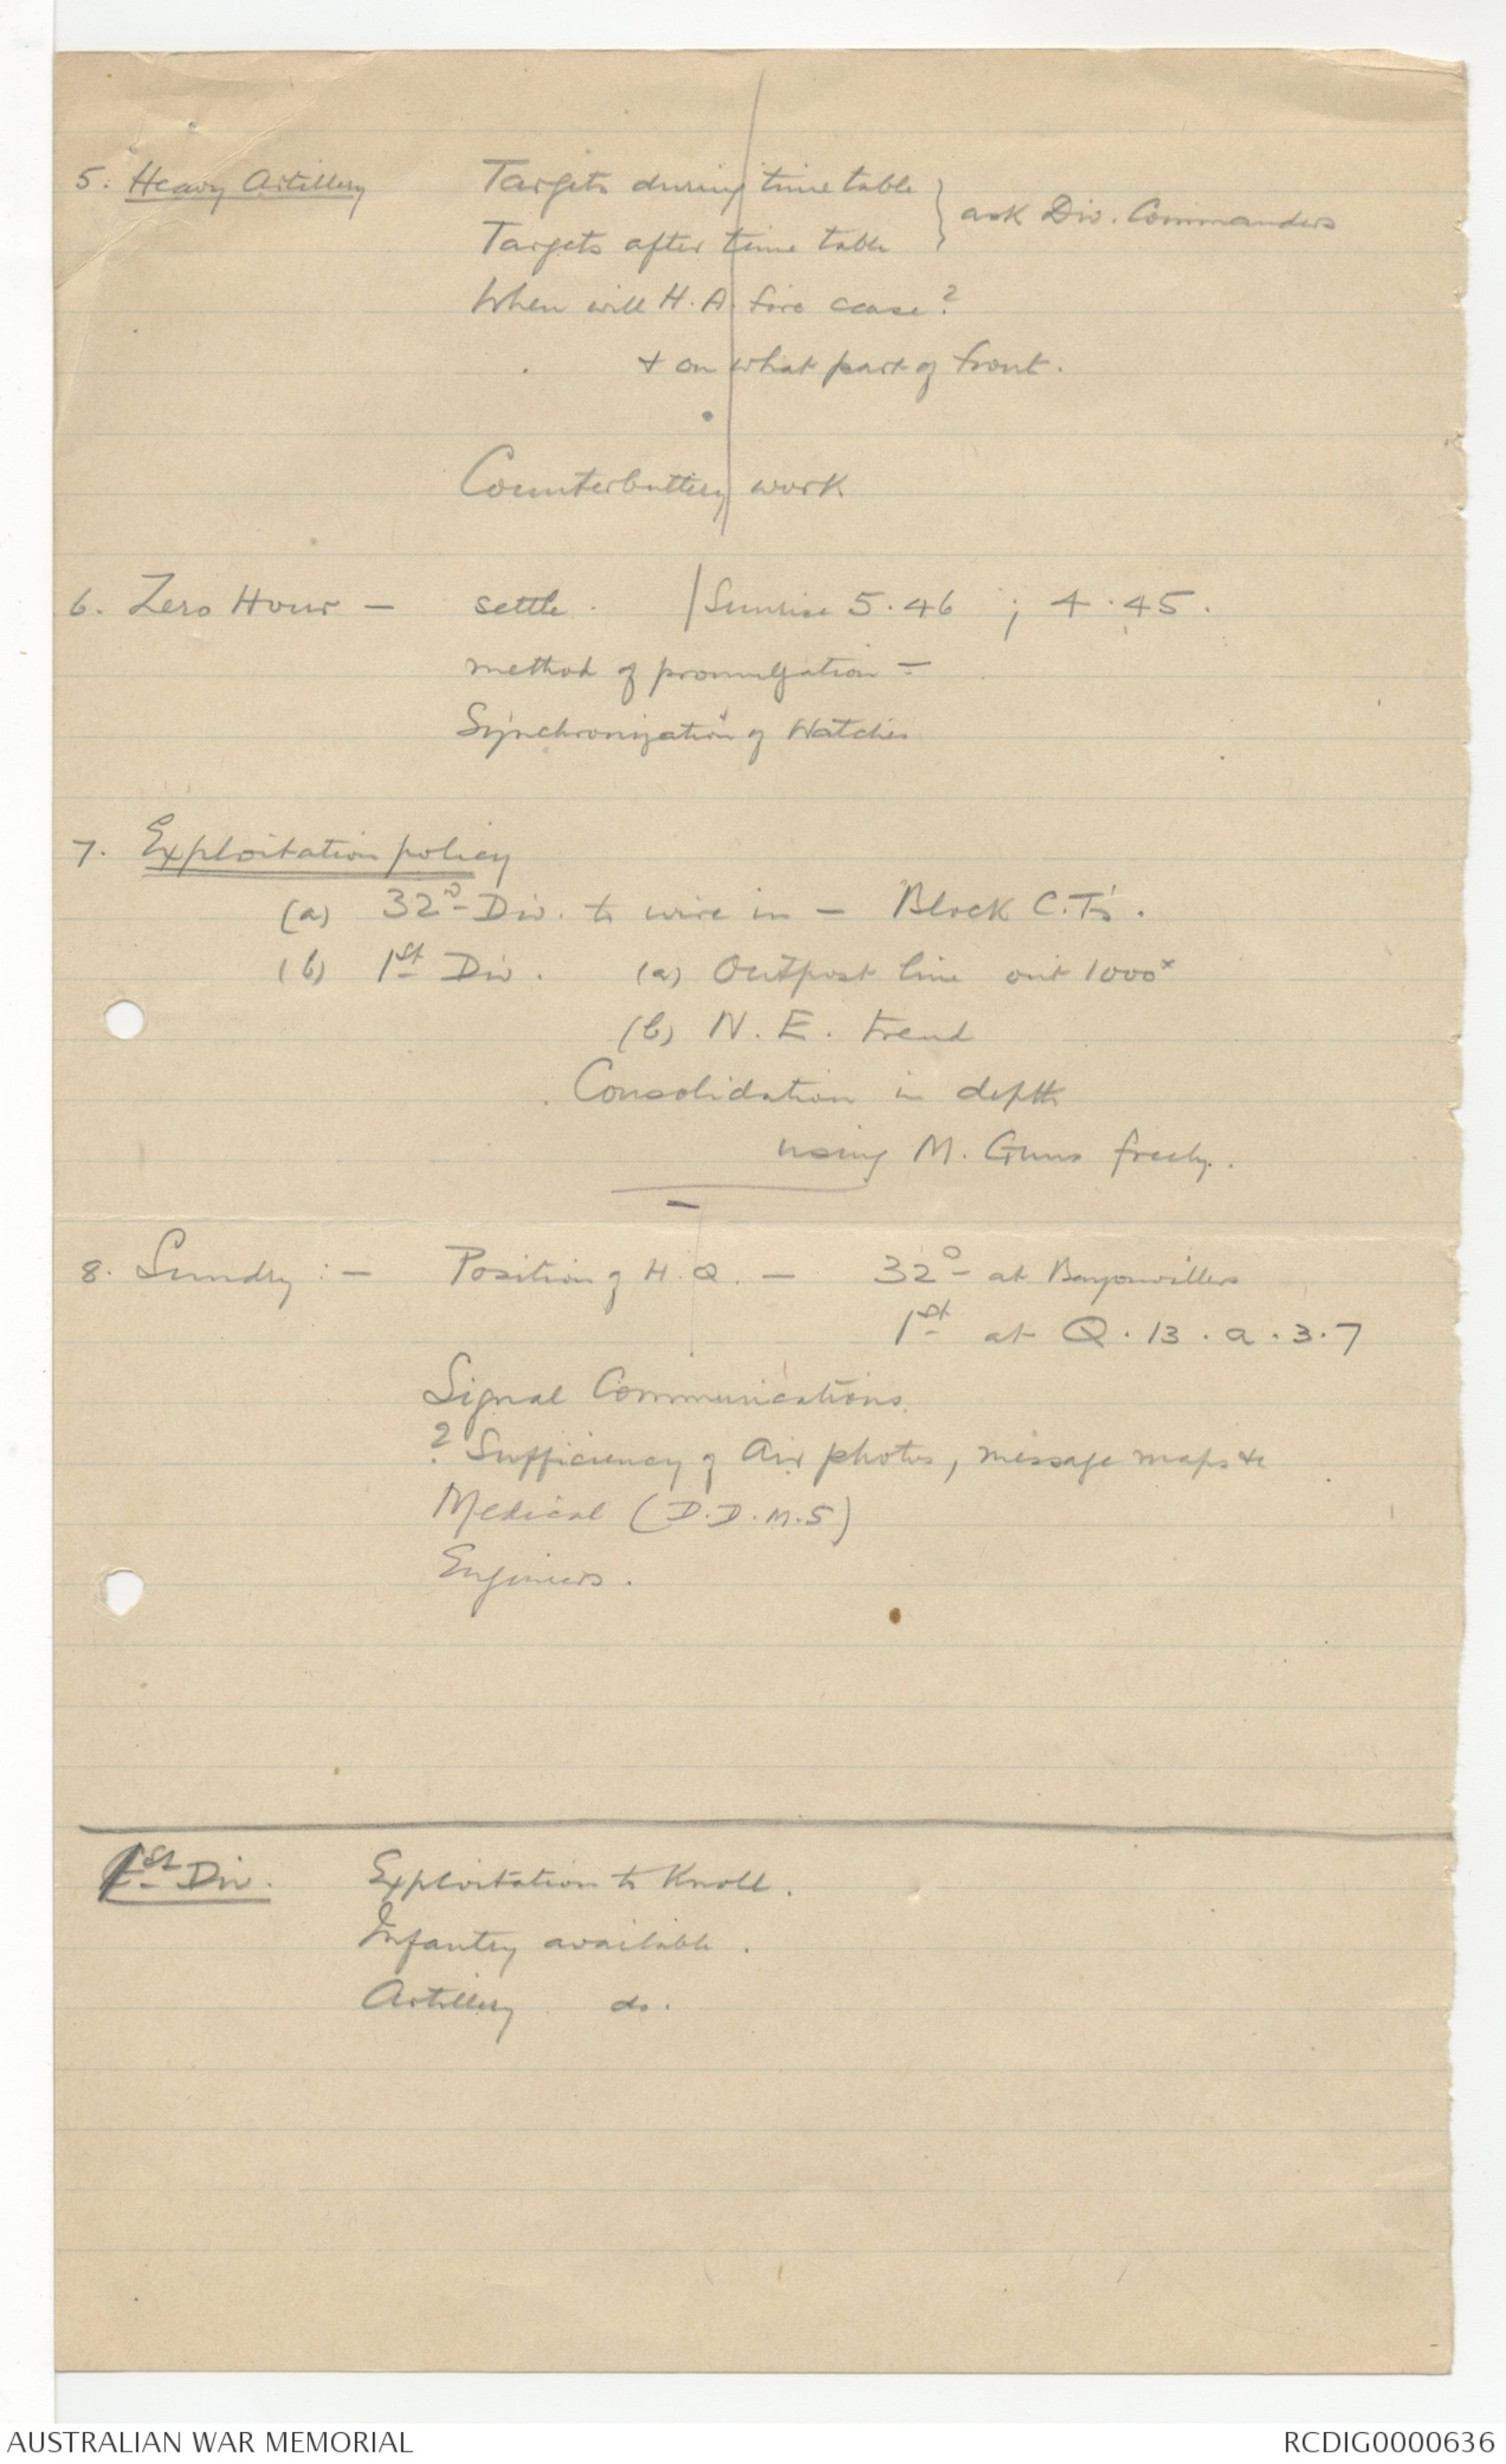 5. Heavy Artillery Targets during time table } ask Div. Commanders
Targets after time table
When will H.A. fire cease?
+ on what part of front.
Counterbattery work
6. Zero Hour — settle. / Sunrise 5.46 ; 4.45.
method of promulgation —
Synchronization of Watches
7. Exploitation policy
(a) 32nd Div. to wire in — Block C.T's.
(b) 1st Div. (a) Outpost line out 1000x
(b) N.E. trend
Consolidation in depth
using M. Guns freely.
8. Sundry :— Position of H.Q. — 32nd at Bayonvillers
1st at Q.13.a.3.7
Signal Communications.
? Sufficiency of Air photos, message maps &c
Medical (D.D.M.S)
Engineers.
1st Div. Exploitation to Knoll.
Infantry available.
Artillery do.
AUSTRALIAN WAR MEMORIAL
RCDIG0000636